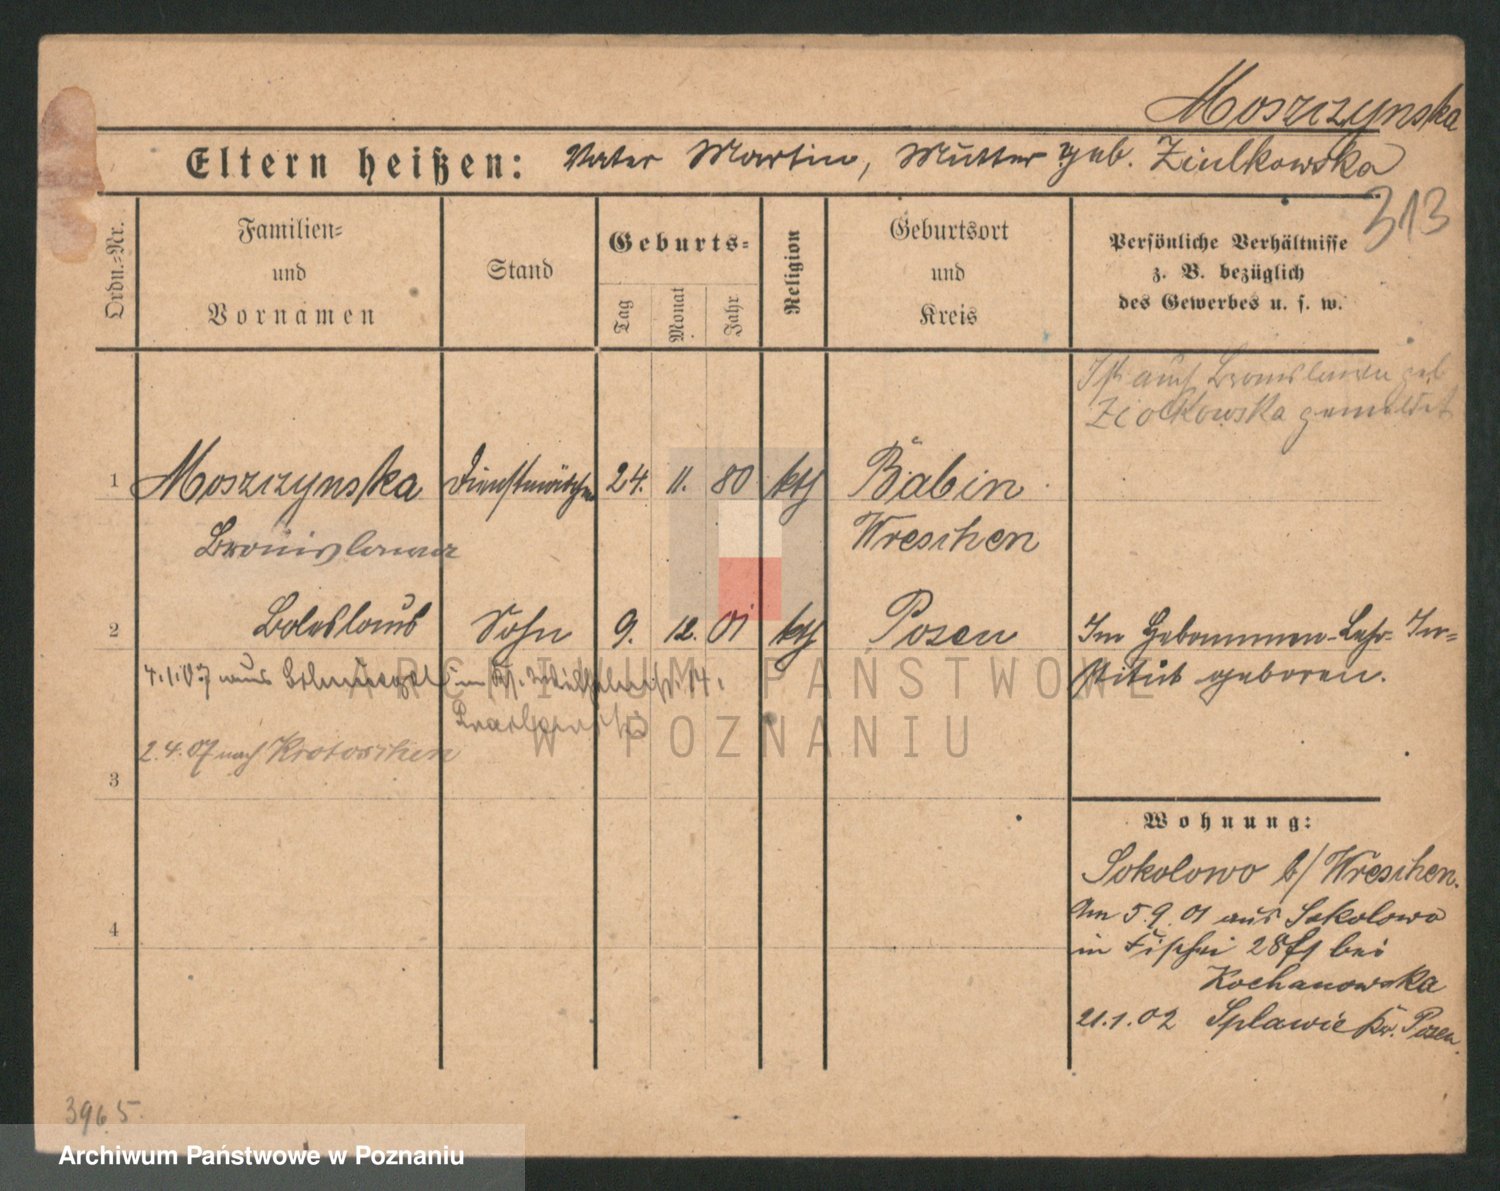 Moszczynska
Eltern heißen: Vater Martin, Mutter geb. Ziulkowska
313
Ordn.-Nr.
Familien-
und
Vornamen
Stand
Geburts-
Tag
Monat
Jahr
Religion
Geburtsort
und
Kreis
Persönliche Verhältnisse
z. B. bezüglich
des Gewerbes u. s. w.
Ist auch Bronislawa geb
Ziolkowska gemeldet
1 Moszczynska Dienstmädchen 24. 11. 80 kth Babin
Bronislawa Wreschen
2 Boleslaus Sohn 9. 12. 01 kth Posen Im Hebammen-Lehr-In-
stitut geboren.
4.1.07 aus 14.
2.4.07 nach Krotoschin
3
Wohnung:
Sokolowo b/Wreschen.
Am 5.9.01 aus Sokolowo
4
in 28 bei
Kochanowska
21.1.02 Splawie Kr. Posen.
3965
ARCHIWUM PAŃSTWOWE
W POZNANIU
Archiwum Państwowe w Poznaniu